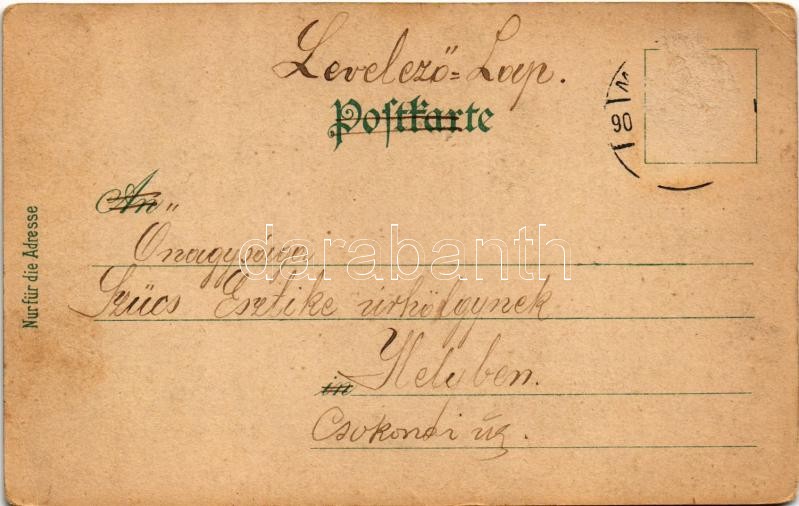 Levelező-Lap.
Postkarte
An
Őnagysága
Szücs Esztike úrhölgynek
in Helyben.
Csokonai út.
Nur für die Adresse
90
darabanth